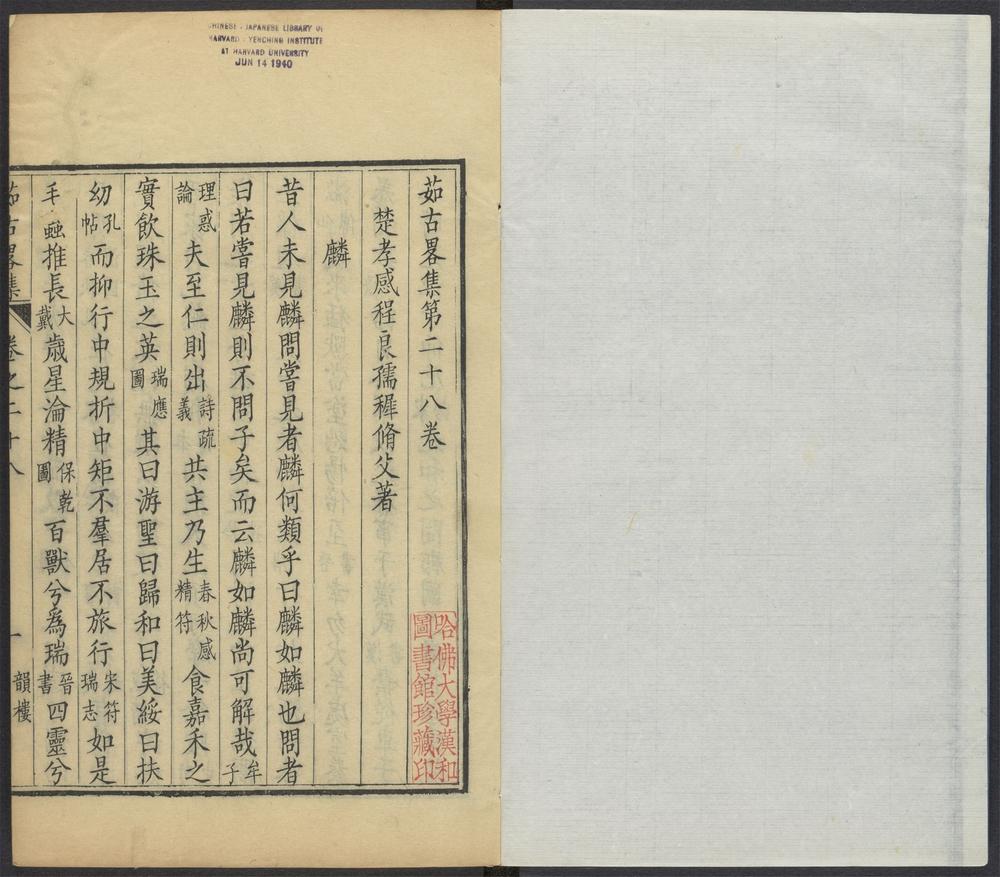 CHINESE - JAPANESE LIBRARY OF
HARVARD - YENCHING INSTITUTE
AT HARVARD UNIVERSITY
JUN 14 1940
茹古畧集第二十八卷
楚孝感程良孺穉脩父著
麟
昔人未見麟問嘗見者麟何類乎曰麟如麟也問者
曰若嘗見麟則不問子矣而云麟如麟尚可解哉牟子
理惑論夫至仁則出詩疏義共主乃生春秋感精符食嘉禾之
實飲珠玉之英瑞應圖其曰游聖曰歸和曰美綏曰扶
幼孔帖而抑行中規折中矩不羣居不旅行宋符瑞志如是
毛蟲推長大戴歲星淪精保乾圖百獸兮爲瑞晉書四靈兮
茹古畧集 卷之二十八 一 韻樓
哈佛大學漢和
圖書館珍藏印